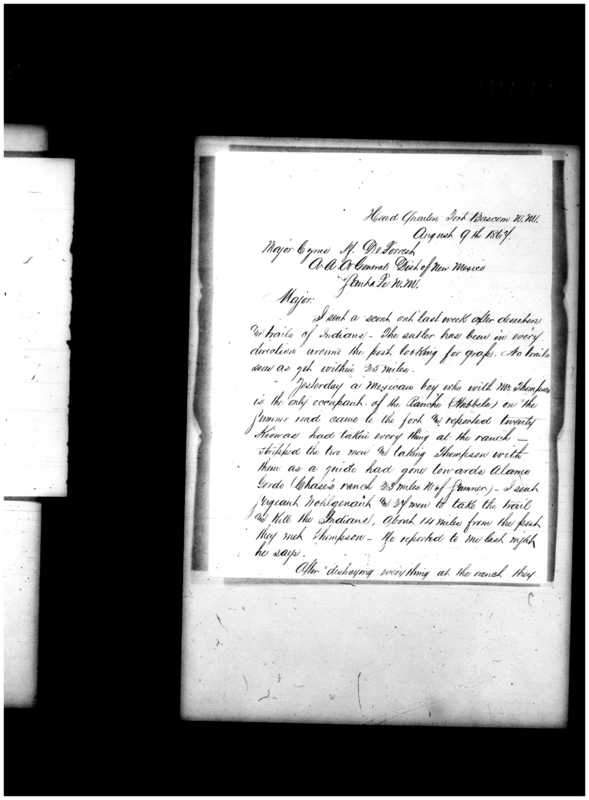 Head Quarters Fort Bascom N.M.
August 9th 1867.
Major Cyrus H. De Forrest
A A A General Dist of New Mexico
Santa Fe N.M.
Major:
I sent a scout out last week after deserters
& trails of Indians - The sutler has been in every
direction around the post looking for grass. No trails
seen as yet within 35 miles.
Yesterday a Mexican boy who with Mr Thompson
is the only occupant of the Ranche on the
Sumner road came to the fort & reported twenty
Kiowas had taken every thing at the ranch -
stripped the two men & taking Thompson with
them as a guide had gone towards Alamo
Gordo (Chase's ranch 33 miles N of Sumner) - I sent
Sergeant & 27 men to take the trail
& Kill the Indians. About 14 miles from the post
they met Thompson - He reported to me last night
he says.
After destroying everything at the ranch they